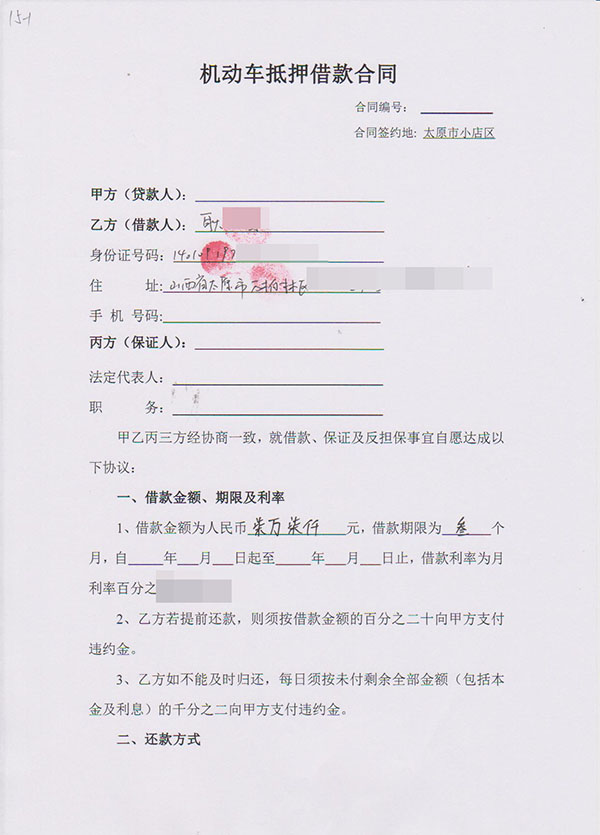 15-1
机动车抵押借款合同
合同编号：
合同签约地: 太原市小店区
甲方（贷款人）：
乙方（借款人）：耿
身份证号码:
住 址: 山西省太原市万柏林区
手 机 号码:
丙方（保证人）：
法定代表人：
职 务：
甲乙丙三方经协商一致，就借款、保证及反担保事宜自愿达成以
下协议：
一、借款金额、期限及利率
1、借款金额为人民币柒万柒仟元，借款期限为叁个
月，自 年 月 日起至 年 月 日止，借款利率为月
利率百分之
2、乙方若提前还款，则须按借款金额的百分之二十向甲方支付
违约金。
3、乙方如不能及时归还，每日须按未付剩余全部金额（包括本
金及利息）的千分之二向甲方支付违约金。
二、还款方式